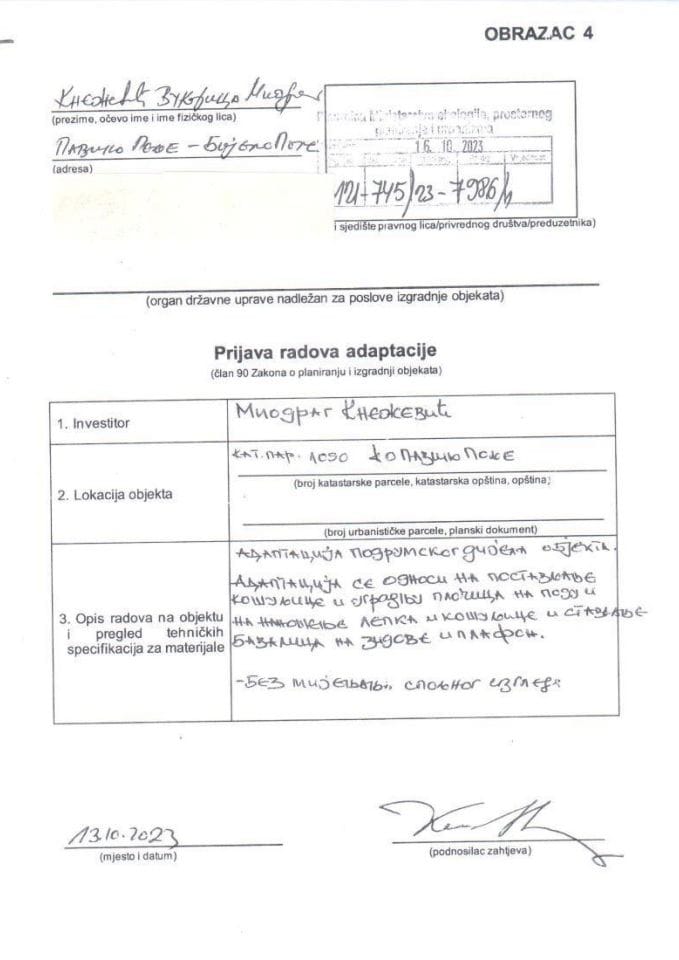 OBRAZAC 4
Кнежевић Вукорица Миодраг
(prezime, očevo ime i ime fizičkog lica)
Павино Поље - Бијело Поље
(adresa)
Ministarstvo ekologije, prostornog
planiranja i urbanizma
16. 10. 2023
121-745/23-7986/1
i sjedište pravnog lica/privrednog društva/preduzetnika)
(organ državne uprave nadležan za poslove izgradnje objekata)
Prijava radova adaptacije
(član 90 Zakona o planiranju i izgradnji objekata)
1. Investitor
Миодраг Кнежевић
2. Lokacija objekta
кат. пар. 1090 КО Павино Поље
(broj katastarske parcele, katastarska opština, opština)
(broj urbanističke parcele, planski dokument)
3. Opis radova na objektu
i pregled tehničkih
specifikacija za materijale
Адаптација подрумског дијела објекта.
Адаптација се односи на постављање
кошуљице и уградњу плочица на поду и
на наношење лепка и кошуљице и стављање
на зидове и плафон.
- Без мијењања спољног изгледа
13.10.2023
(mjesto i datum)
(podnosilac zahtjeva)